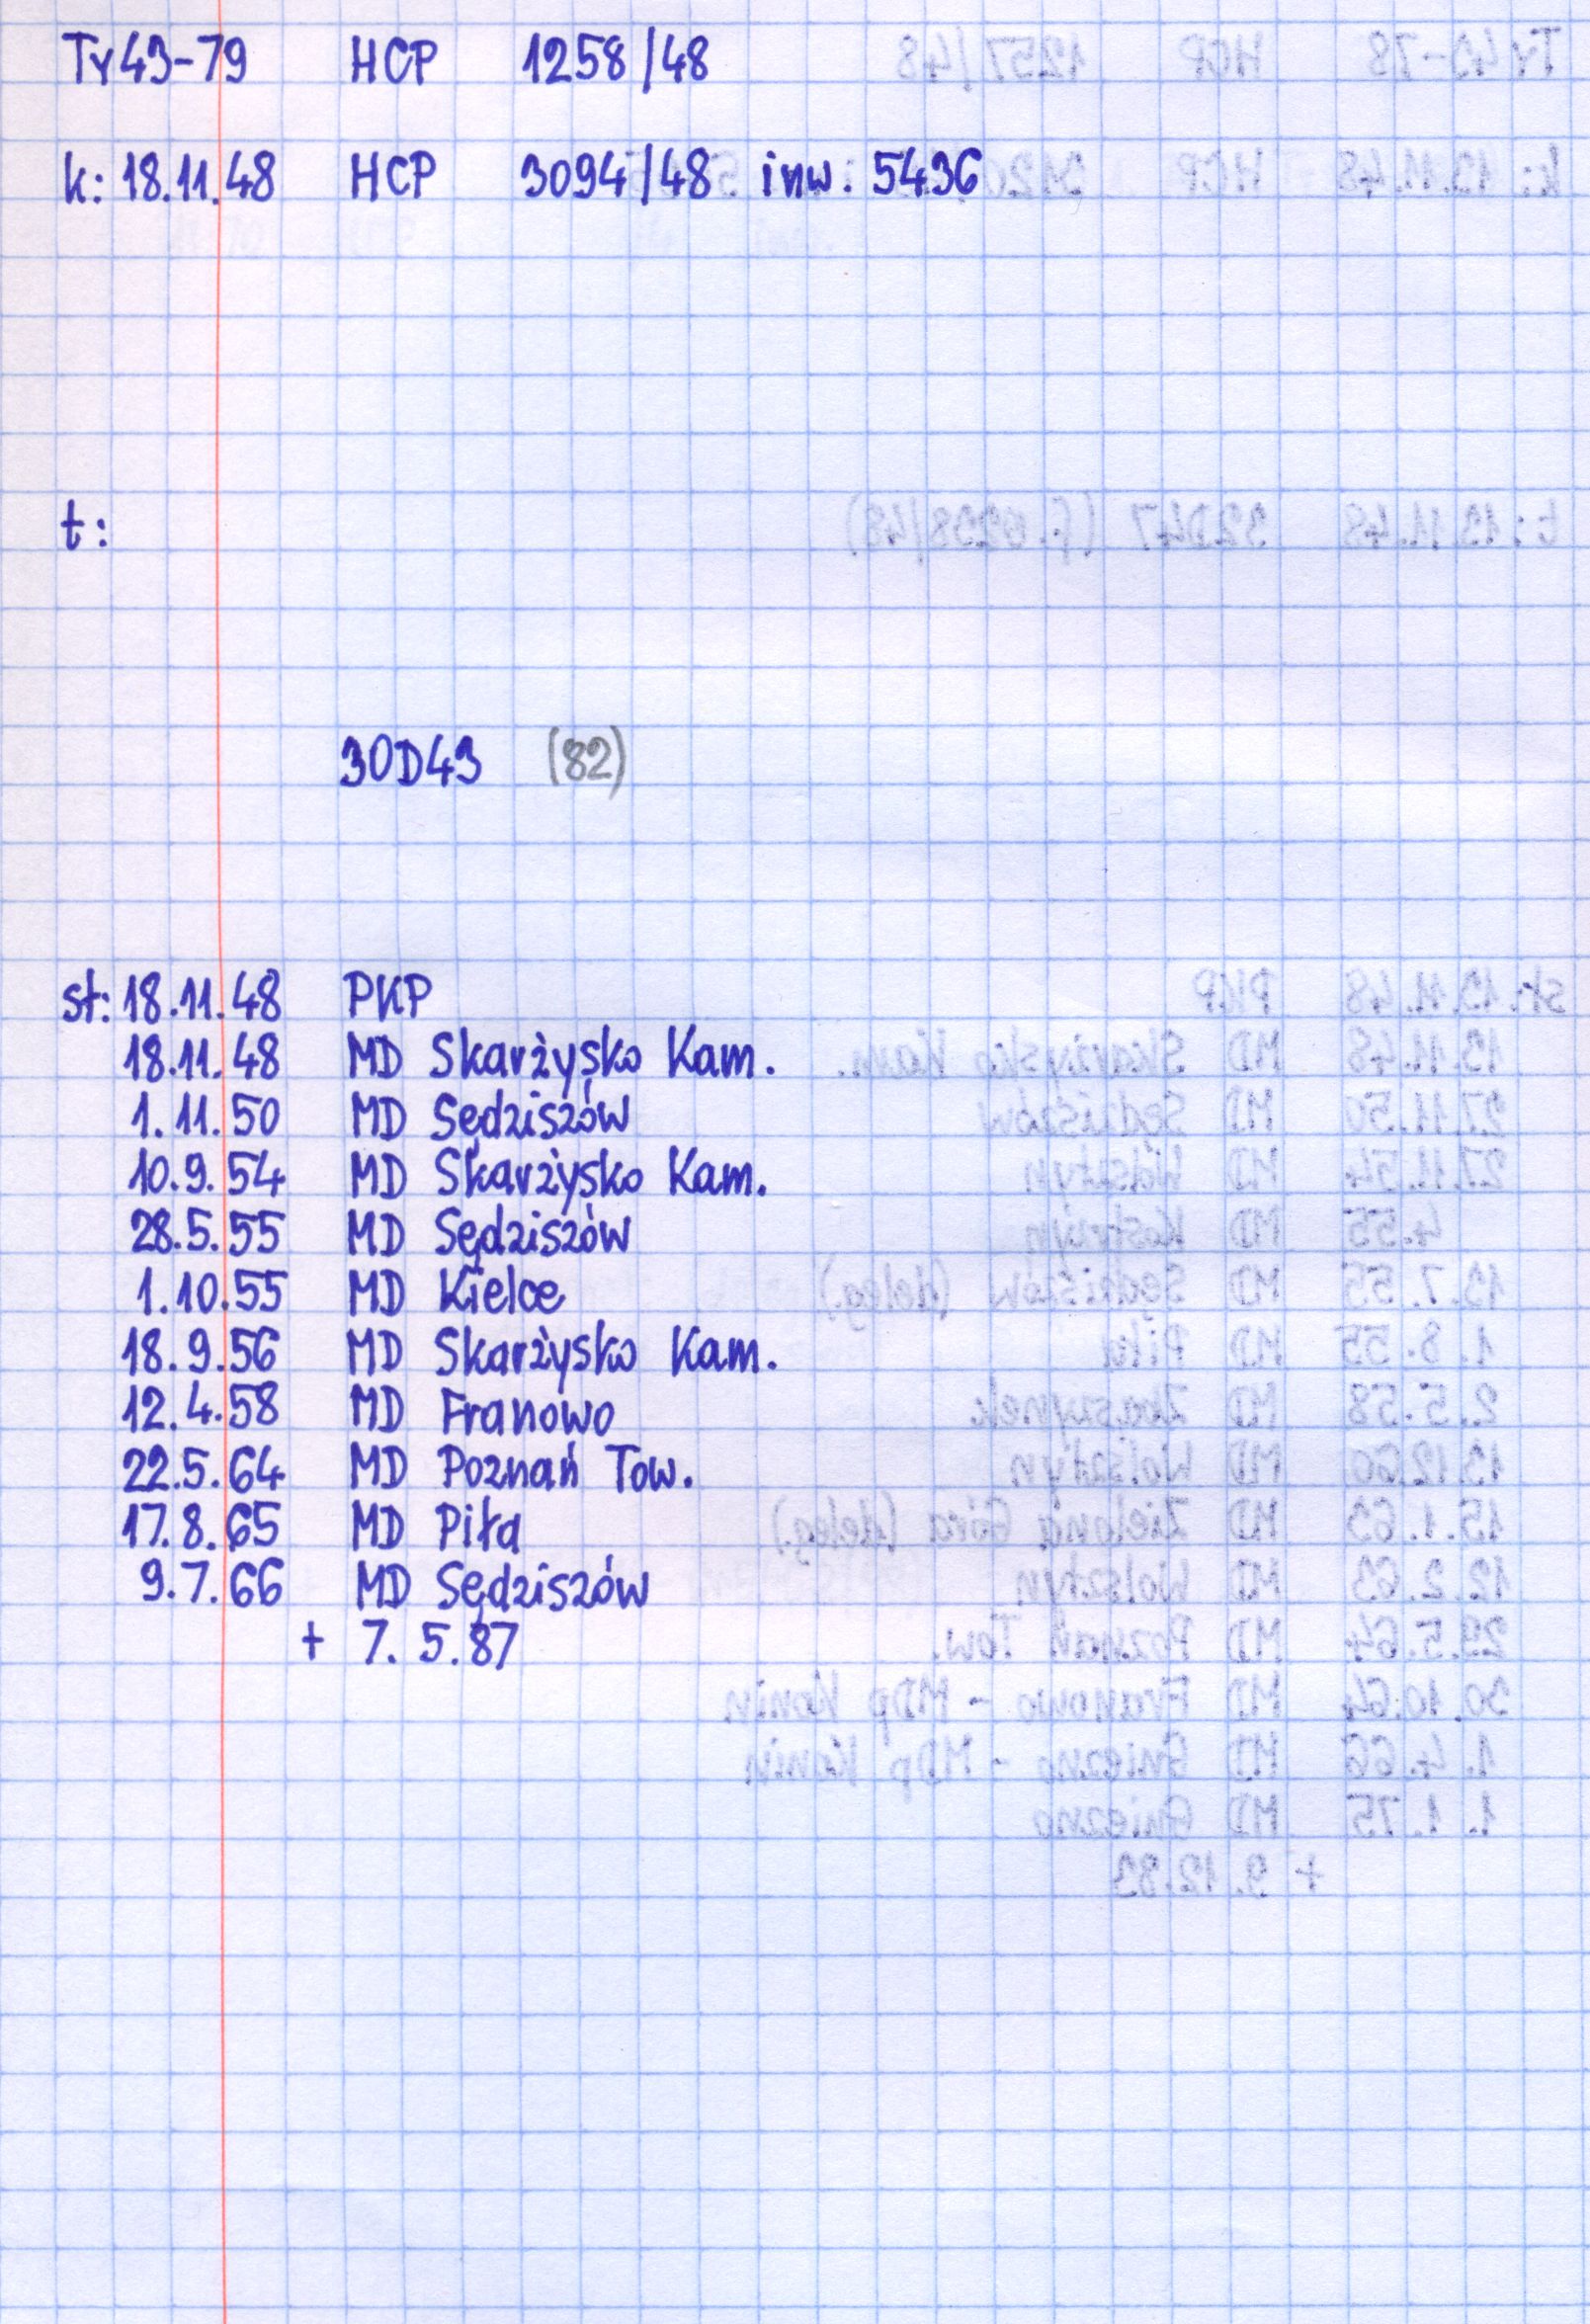 Ty43-79 HCP 1258/48
k: 18.11.48 HCP 3094/48 inw. 5436
t:
30D43 (82)
st: 18.11.48 PKP
18.11.48 MD Skarżysko Kam.
1.11.50 MD Sędziszów
10.9.54 MD Skarżysko Kam.
28.5.55 MD Sędziszów
1.10.55 MD Kielce
18.9.56 MD Skarżysko Kam.
12.4.58 MD Franowo
22.5.64 MD Poznań Tow.
17.8.65 MD Piła
9.7.66 MD Sędziszów
+ 7.5.87